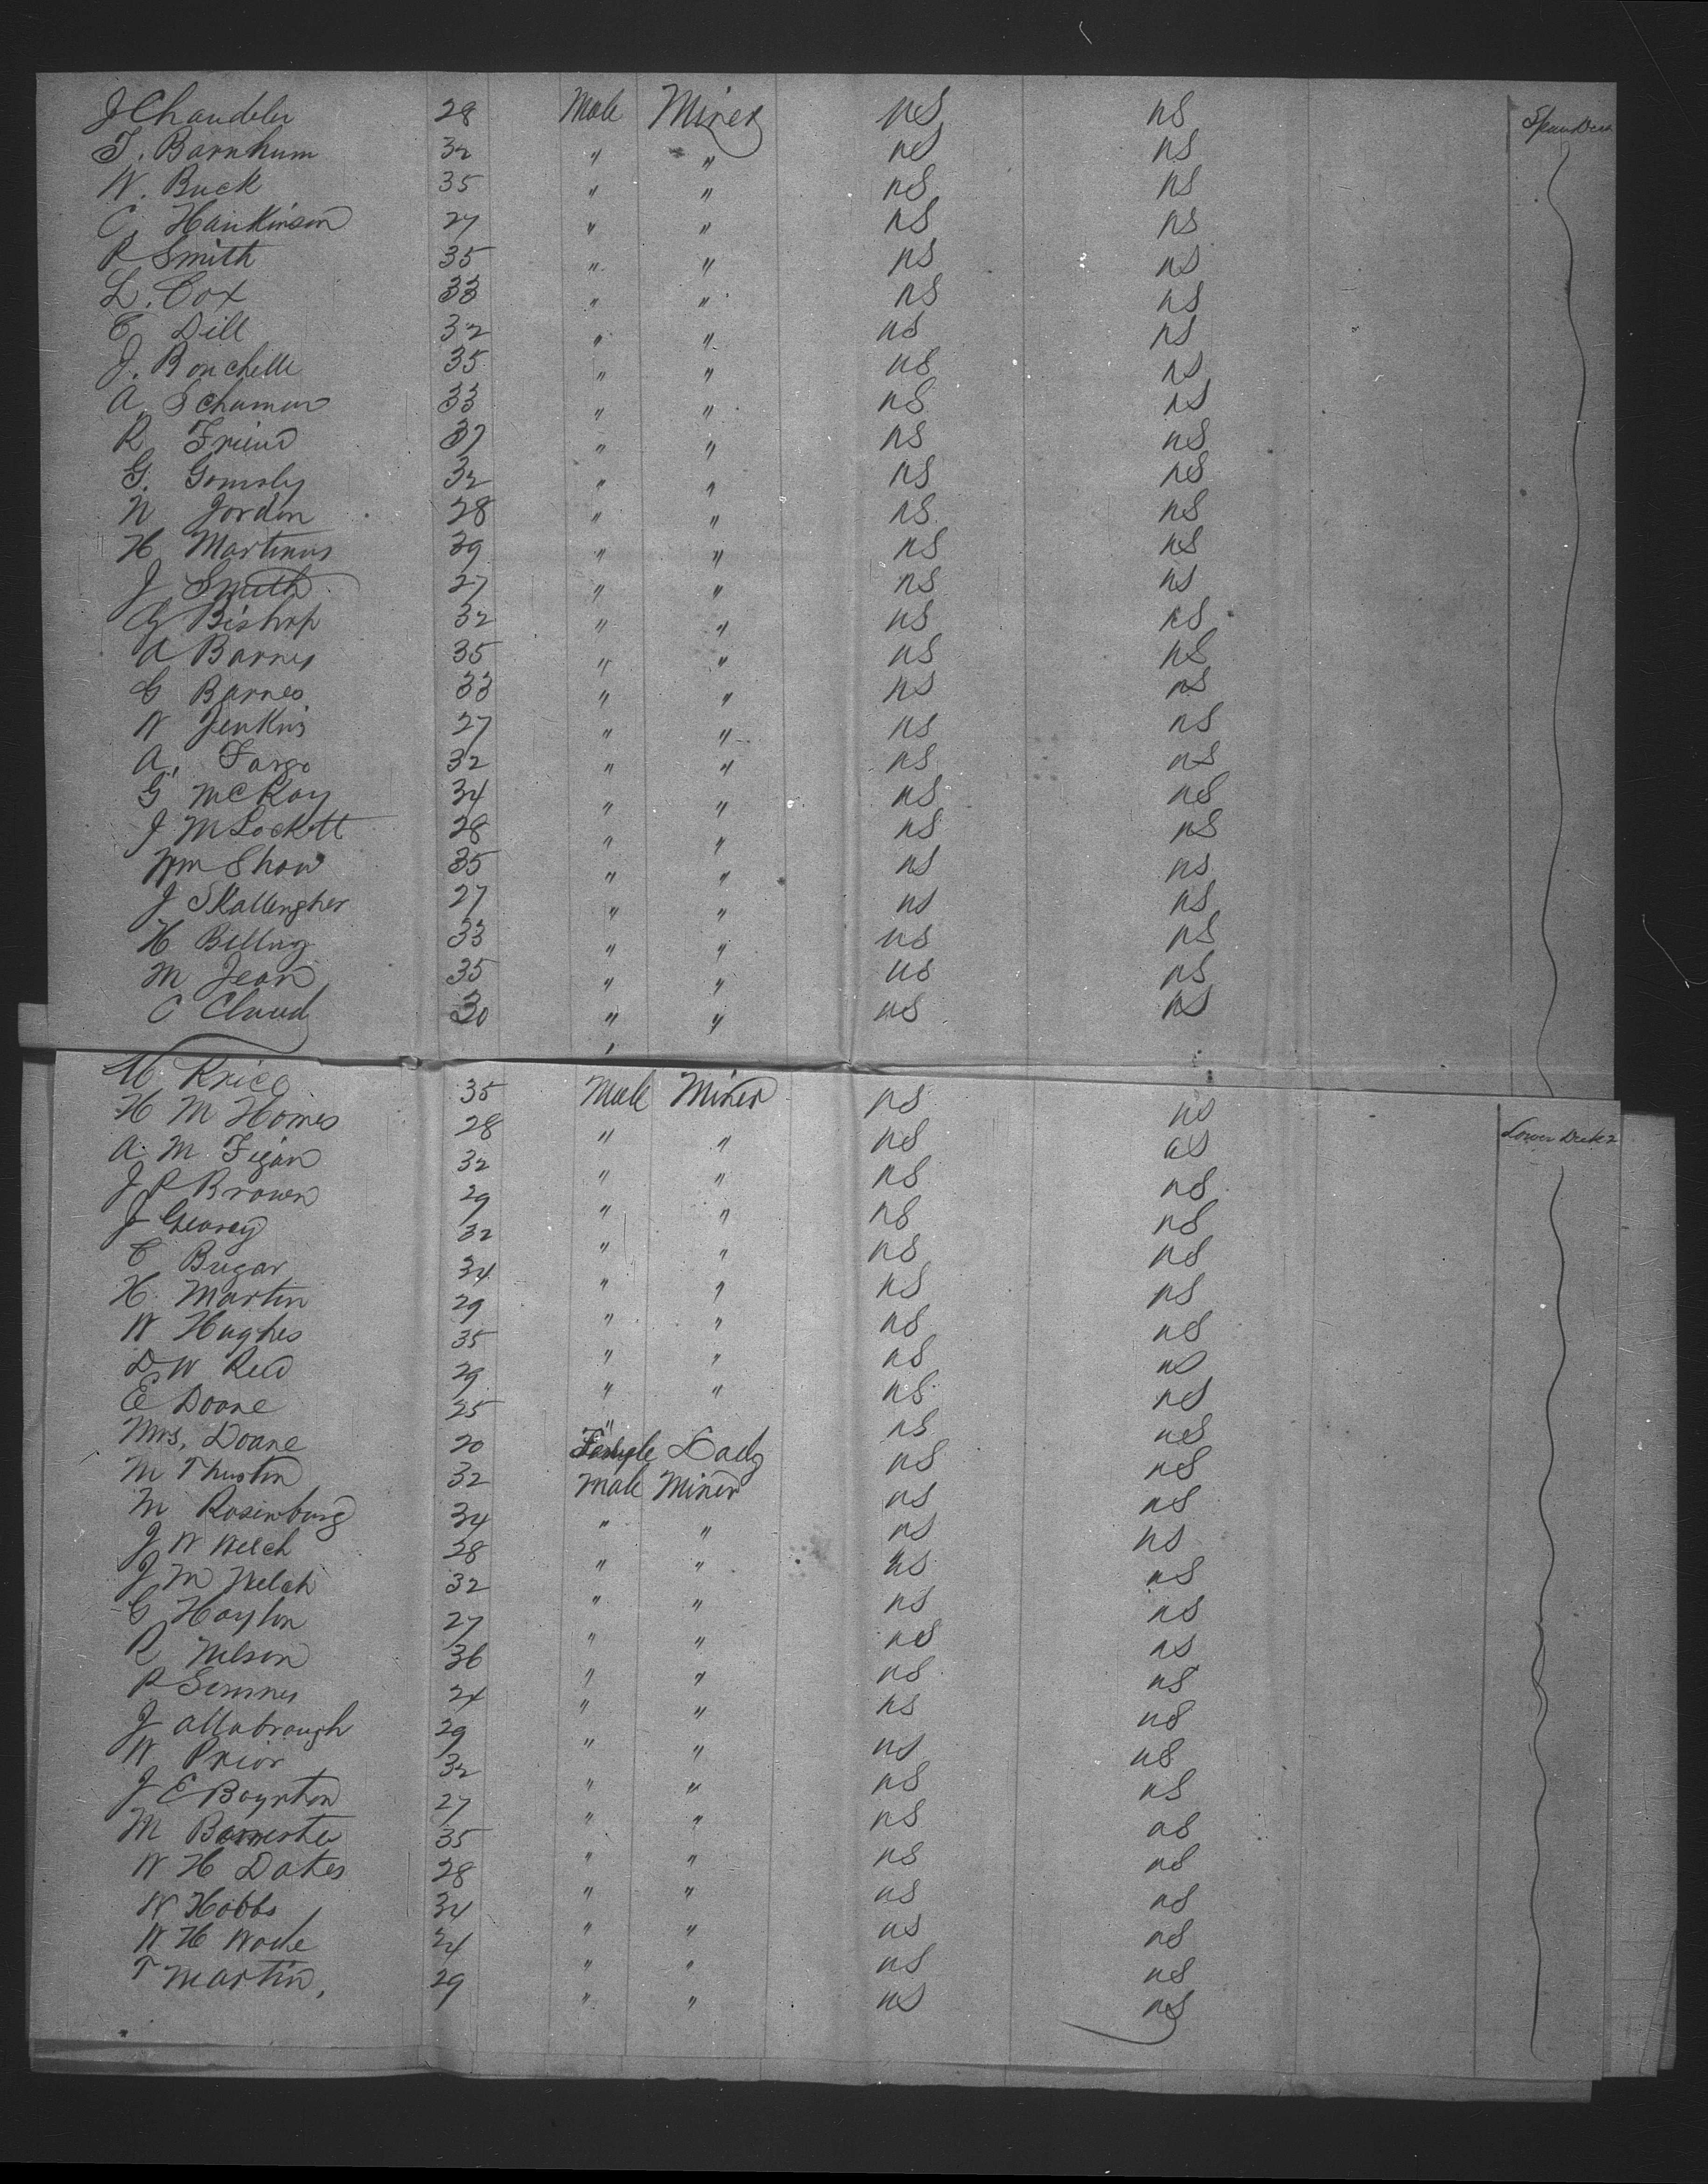 J Chandeler 28 Male Miner US US Spar Deck
T. Barnhum 32 " " US US
W. Buck 35 " " US US
C. Hankinson 27 " " US US
R Smith 35 " " US US
L. Cox 33 " " US US
C Dill 32 " " US US
J. Bonchelle 35 " " US US
A Schuman 33 " " US US
R Friend 37 " " US US
G. Gomsby 32 " " US US
N Jordon 28 " " US US
H Martinus 39 " " US US
J Smith 27 " " US US
G Bishop 32 " " US US
A Barnes 35 " " US US
G Barnes 33 " " US US
W Jenkins 27 " " US US
A. Fargo 32 " " US US
G McKay 34 " " US US
J M Lockett 28 " " US US
Wm Shaw 35 " " US US
J Skallengher 27 " " US US
H Billing 33 " " US US
M Jean 35 " " US US
C Claud 30 " " US US
Krice 35 Male Miner US US Lower Deck 2
H M Homes 28 " " US US
A. M. Figan 32 " " US US
J R Brown 29 " " US US
J Gearey 32 " " US US
C Bugar 34 " " US US
H. Martin 29 " " US US
W Hughes 35 " " US US
D W Reed 29 " " US US
E Doane 25 " US US
Mrs. Doane 20 Female Lady US US
M Thustin 32 Male Miner US US
M Rosenburg 34 " " US US
J W Welch 28 " " US US
J M Welch 32 " " US US
G Haylon 27 " " US US
R Nelson 36 " " US US
R Semmes 24 " " US US
J Allabrough 29 " " US US
W Prior 32 " " US US
J E Boynton 27 " " US US
M 35 " " US US
W H Dakes 28 " " US US
W Hobbs 34 " " US US
W H Wade 24 " " US US
T Martin, 29 " " US US